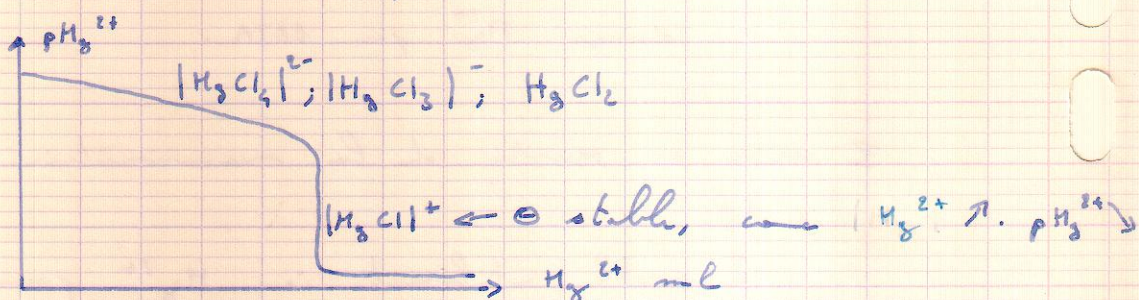 pHg²⁺
|HgCl₄|²⁻; |HgCl₃)⁻; HgCl₂
|HgCl|⁺ ← ⊖ stable, Hg²⁺ ↗. pHg²⁺ ↘
Hg²⁺ ml